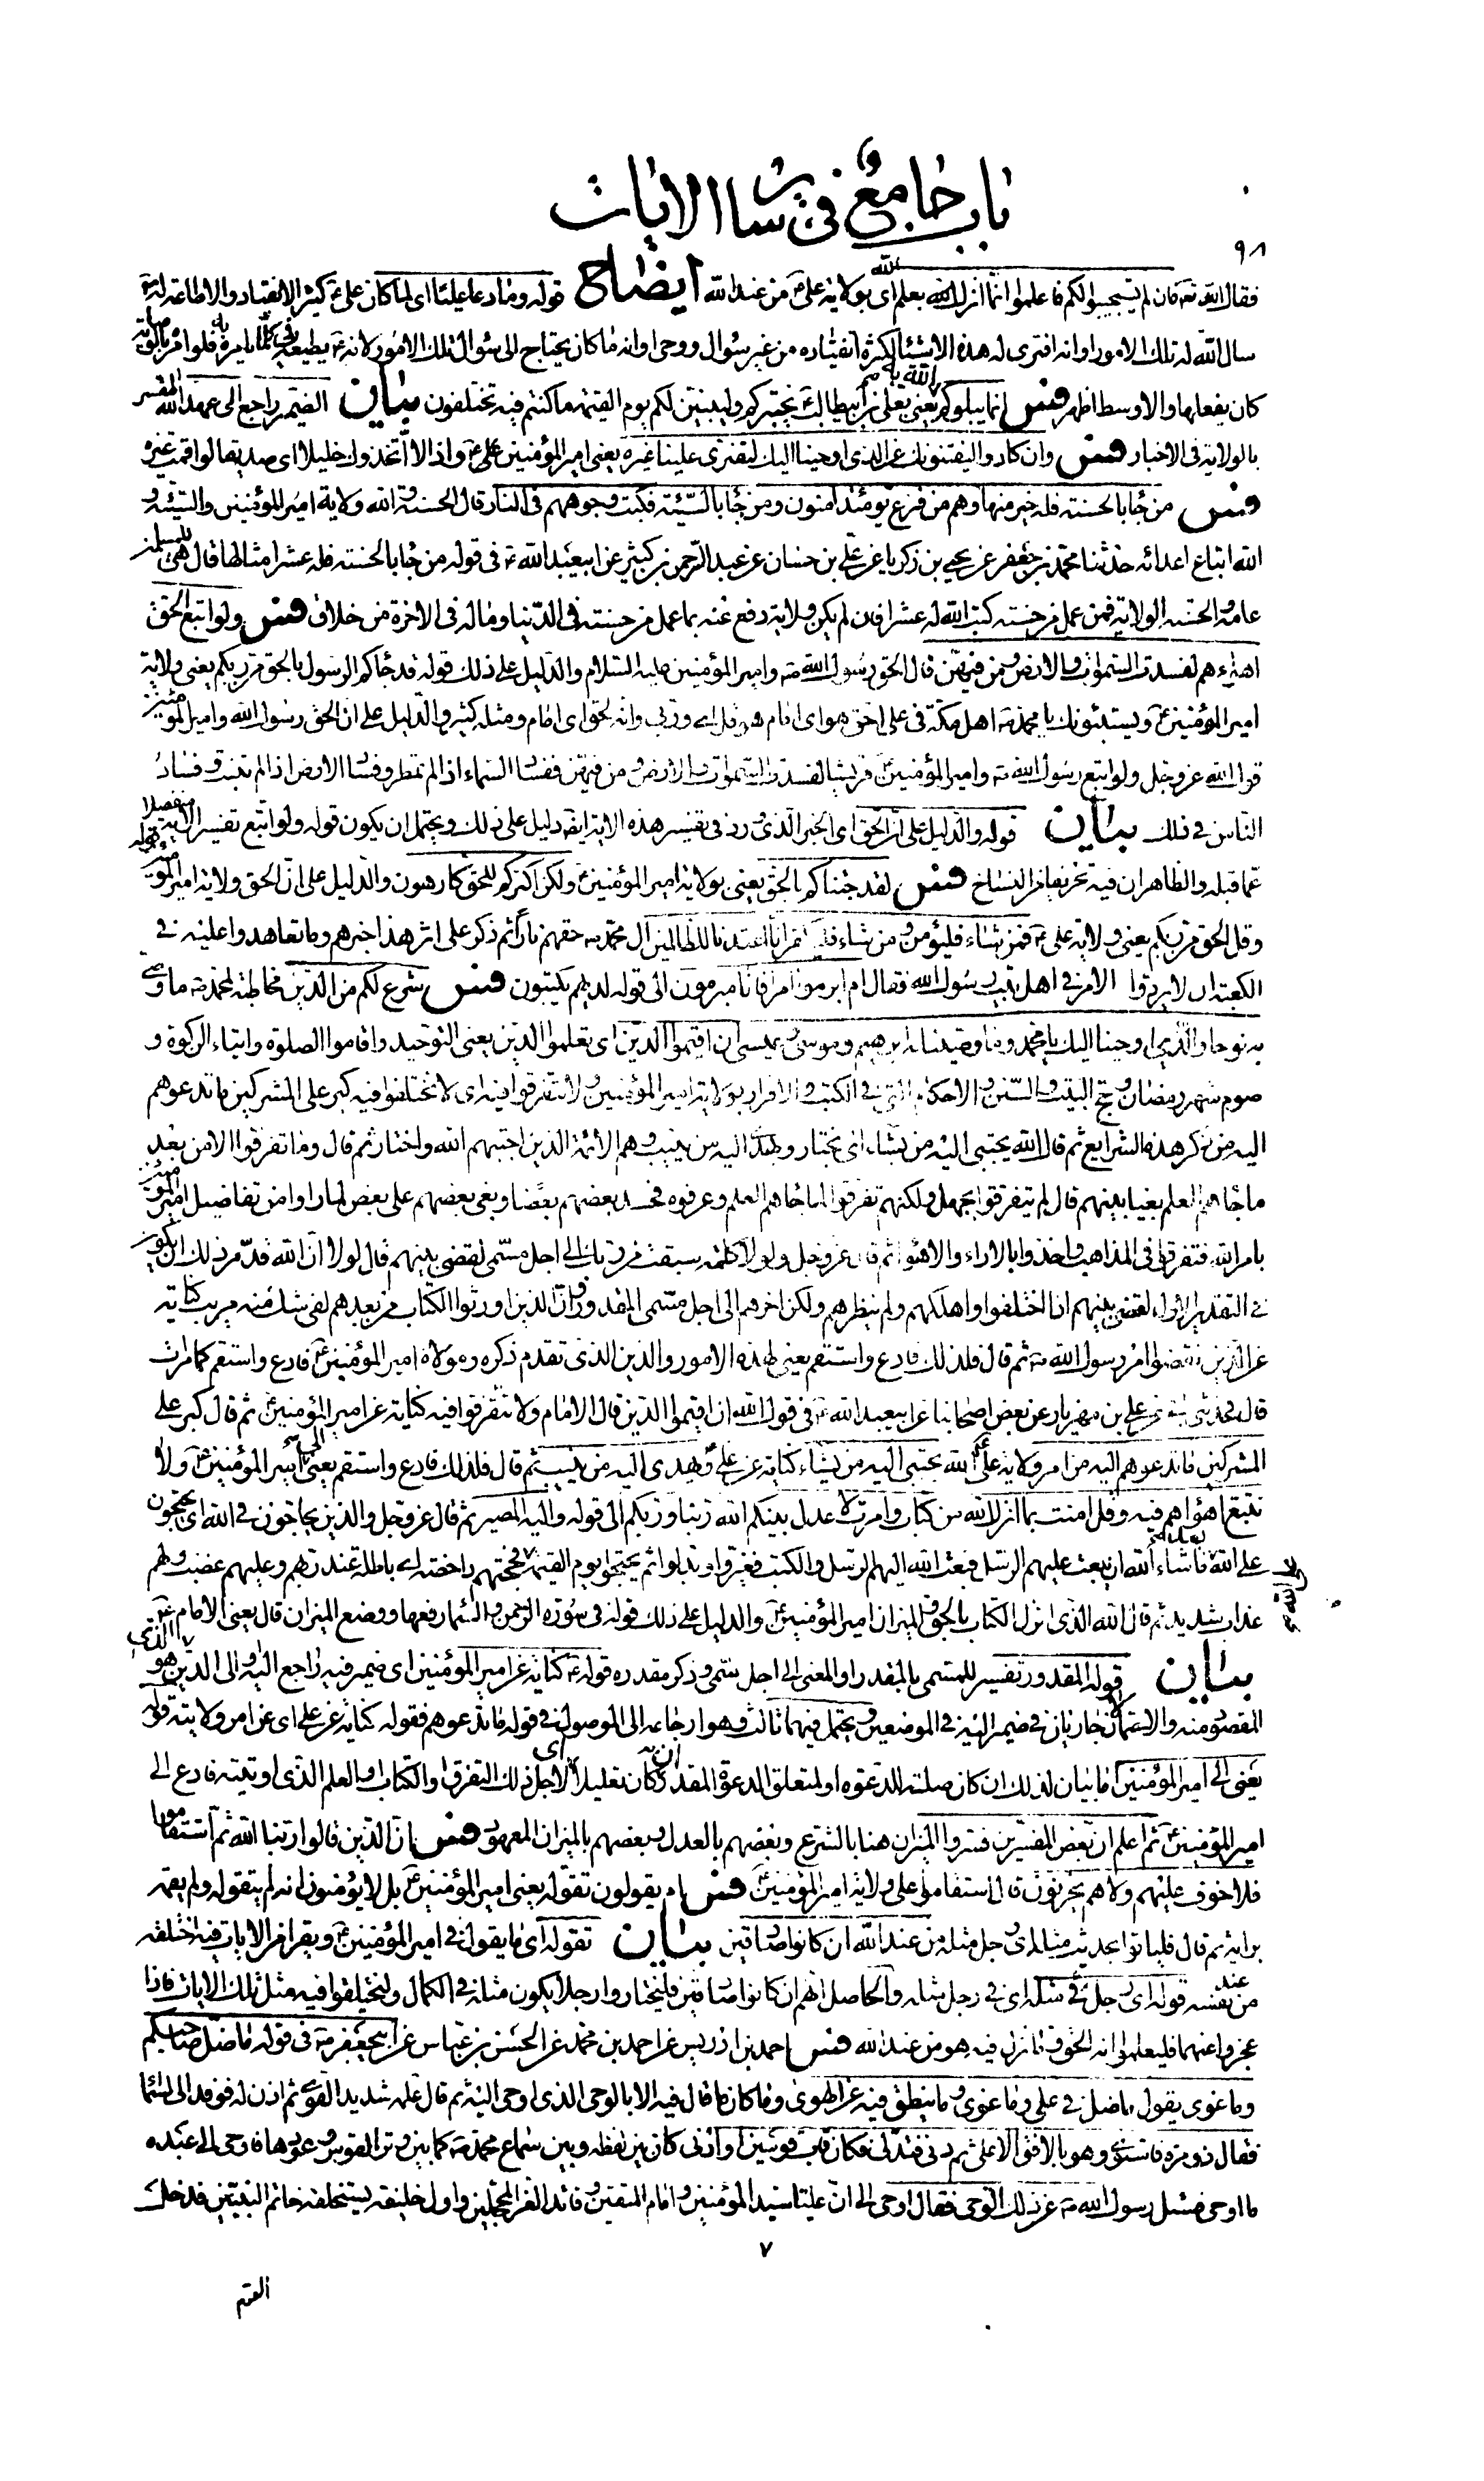 باب جامع في سائر الايات
٩٨
فقال الله تع فان لم يستجيبوا لكم فاعلموا انما انزل الله بعلم اى بولاية على ع من عند الله ايضاح قوله وما دعا عليا اى لما كان على ع كثير الانقياد والاطاعة له
سال الله له تلك الامور او انه افترى له هذه الاشياء لكثرة انقياده من غير سؤال ووحى او انه ما كان يحتاج الى سؤال تلك الامور لانه ع يطيعه فى كلما يامره به فلو امر
كان يفعلها والاوسط اظهر فس انما يبلوكم الله به يعنى بعلى بن ابيطالب ع يختبركم وليبينن لكم يوم القيمة ما كنتم فيه تختلفون بيان الضمير راجع الى عهد الله المفسر
بالولاية فى الاخبار فس وان كادوا ليفتنونك عن الذى اوحينا اليك لتفترى علينا غيره يعنى امير المؤمنين على ع واذا لاتخذوك خليلا اى صديقا لو اقمت غيره
فس من جاء بالحسنة فله خير منها وهم من فزع يومئذ امنون ومن جاء بالسيئة فكبت وجوههم فى النار قال الحسنة والله ولاية امير المؤمنين والسيئة و
الله اتباع اعدائه حدثنا محمد بن جعفر عن يحيى بن زكريا عن على بن حسان عن عبد الرحمن بن كثير عن ابيعبد الله ع فى قوله من جاء بالحسنة فله عشر امثالها قال هى للمسلمين
عامة والحسنة الولاية فمن عمل من حسنة كتب الله له عشرا فان لم يكن ولاية دفع عنه بما عمل من حسنة فى الدنيا وماله فى الاخرة من خلاق فس ولو اتبع الحق
اهواءهم لفسدت السموات والارض ومن فيهن قال الحق رسول الله ص وامير المؤمنين عليه السلام والدليل على ذلك قوله قد جاءكم الرسول بالحق من ربكم يعنى ولاية
امير المؤمنين ع ويستنبئونك يا محمد ص اهل مكة فى على احق هو اى امام هو قل اى وربى وانه لحق اى امام ومثله كثير والدليل على ان الحق رسول الله وامير المؤمنين
قول الله عز وجل ولو اتبع رسول الله ص وامير المؤمنين ع قريشا لفسدت السموات والارض ومن فيهن ففساد السماء اذا لم تمطر وفساد الارض اذا لم تنبت وفساد
الناس فى ذلك بيان قوله والدليل على ان الحق اى الخبر الذى ورد فى تفسير هذه الاية ايضا دليل على ذلك ويحتمل ان يكون قوله ولو اتبع تفسير الاية منفصلا
عما قبله والظاهر ان فيه تحريفا من النساخ فس لقد جئناكم بالحق يعنى بولاية امير المؤمنين ع ولكن اكثركم للحق كارهون والدليل على ان الحق ولاية امير المؤمنين قوله
وقل الحق من ربكم يعنى ولاية على ع فمن شاء فليؤمن ومن شاء فليكفر انا اعتدنا للظالمين ال محمد ص حقهم نارا ثم ذكر على اثر هذا خبرهم وما تعاهدوا عليه فى
الكعبة ان لا يردوا الامر فى اهل بيت رسول الله فقال ام ابرموا امرا فانا مبرمون الى قوله لديهم يكتبون فس شرع لكم من الدين مخاطبة لمحمد ص ما وصى
به نوحا والذى اوحينا اليك يا محمد وما وصينا به ابرهيم وموسى وعيسى ان اقيموا الدين اى تعلموا الدين يعنى التوحيد واقاموا الصلوة وايتاء الزكوة و
صوم شهر رمضان وحج البيت والسنن والاحكام التى فى الكتب والاقرار بولاية امير المؤمنين ولا تتفرقوا فيه اى لا تختلفوا فيه كبر على المشركين ما تدعوهم
اليه من ذكر هذه الشرايع ثم قال الله يجتبى اليه من يشاء اى يختار ويهدى اليه من ينيب وهم الائمة الذين اجتبيهم الله واختار ثم قال وما تفرقوا الا من بعد
ما جاءهم العلم بغيا بينهم قال لم يتفرقوا بجهل ولكنهم تفرقوا لما جاءهم العلم وعرفوه فحسد بعضهم بعضا وبغى بعضهم على بعض لما راوا من تفاضيل امير المؤمنين
بامر الله فتفرقوا فى المذاهب واخذوا بالاراء والاهواء ثم قال عز وجل ولولا كلمة سبقت من ربك الى اجل مسمى لقضى بينهم قال لولا ان الله قدر ذلك ان يكون
فى التقدير الاول لقضى بينهم اذا اختلفوا واهلكهم ولم ينظرهم ولكن اخرهم الى اجل مسمى المقدور وان الذين اورثوا الكتاب من بعدهم لفى شك منه مريب كناية
عن الذين نقضوا امر رسول الله ص ثم قال فلذلك فادع واستقم يعنى لهذه الامور والدين الذى تقدم ذكره وموالاة امير المؤمنين ع فادع واستقم كما امرت
قال فحدثنى ابى عن على بن مهزيار عن بعض اصحابنا عن ابيعبد الله ع فى قول الله ان اقيموا الدين قال الامام ولا تتفرقوا فيه كناية عن امير المؤمنين ع ثم قال كبر على
المشركين ما تدعوهم اليه من امر ولاية على ع الله يجتبى اليه من يشاء كناية عن على ع ويهدى اليه من ينيب ثم قال فلذلك فادع واستقم يعنى الى امير المؤمنين ع ولا
تتبع اهواءهم فيه وقل امنت بما انزل الله من كتاب وامرت لاعدل بينكم الله ربنا وربكم الى قوله واليه المصير ثم قال عز وجل والذين يحاجون فى الله اى يحتجون
على الله بعد ما شاء الله ان يبعث عليهم الرسل فبعث الله اليهم الرسل والكتب فغيروا وبدلوا ثم يحتجوا يوم القيمة فحجتهم داحضة اى باطلة عند ربهم وعليهم غضب ولهم
عذاب شديد ثم قال الله الذى انزل الكتاب بالحق والميزان قال الميزان امير المؤمنين ع والدليل على ذلك قوله فى سورة الرحمن والسماء رفعها ووضع الميزان قال يعنى الامام ع
بيان قوله المقدور تفسير للمسمى بالمقدر او المعنى الى اجل مسمى وذكر مقدره قوله ع كناية عن امير المؤمنين اى ضمير فيه راجع اليه والى الدين الذى هو
المقصود منه والاحتمالان جاريان فى ضمير اليه فى الموضعين ويحتمل فيهما ثالث وهو ارجاعه الى الموصول فى قوله ما تدعوهم فقوله كناية عن على اى عن امر ولايته قوله
يعنى الى امير المؤمنين اما بيان لذلك ان كان صلته الدعوة او لمتعلق الدعوة المقدر ان كان تعليلا اى لاجل ذلك التفرق او الكتاب او العلم الذى اوتيته فادع الى
امير المؤمنين ع ثم اعلم ان بعض المفسرين فسروا الميزان هنا بالشرع وبعضهم بالعدل وبعضهم بالميزان المعهود فس ان الذين قالوا ربنا الله ثم استقاموا
فلا خوف عليهم ولا هم يحزنون قال استقاموا على ولاية امير المؤمنين ع فس ام يقولون تقوله يعنى امير المؤمنين ع بل لا يؤمنون انه لم يتقوله ولم يقمه
برايه ثم قال فلياتوا بحديث مثله اى رجل مثله من عند الله ان كانوا صادقين بيان تقوله اى ما يقول فى امير المؤمنين ع ويقرا من الايات فيه اختلقه
من عند نفسه قوله اى رجل مثله اى فى رجل مثله والحاصل انهم ان كانوا صادقين فليختاروا رجلا يكون مثله فى الكمال وليختلقوا فيه مثل تلك الايات فاذا
عجزوا عنهما فليعلموا انه الحق وما نزل فيه هو من عند الله فس احمد بن ادريس عن احمد بن محمد عن الحسن بن عباس عن ابيجعفر ع فى قوله ما ضل صاحبكم
وما غوى يقول ما ضل فى على وما غوى وما ينطق فيه عن الهوى وما كان ما قال فيه الا بالوحى الذى اوحى اليه ثم قال علمه شديد القوى ثم اذن له فوفد الى السماء
فقال ذو مرة فاستوى وهو بالافق الاعلى ثم دنى فتدلى فكان قاب قوسين او ادنى كان بين لفظه وبين سماع محمد ص كما بين وتر القوس وعودها فاوحى الى عبده
ما اوحى فسئل رسول الله ص عن ذلك الوحى فقال اوحى الى ان عليا سيد المؤمنين وامام المتقين وقائد الغر المحجلين واول خليفة يستخلفه خاتم النبيين فدخل
٧
القوم